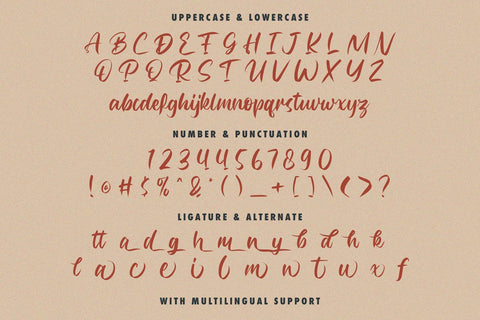 UPPERCASE & LOWERCASE
A B C D E F G H I J K L M N
O P Q R S T U V W X Y Z
abcdefghijklmnopqrstuvwxyz
NUMBER & PUNCTUATION
1 2 3 4 4 5 6 7 8 9 0
! @ # $ % ^ & * ( ) _ + [ ] \ < > ?
LIGATURE & ALTERNATE
tt a d g h m n y b d h k
l a c e i l m w n t w x f
WITH MULTILINGUAL SUPPORT